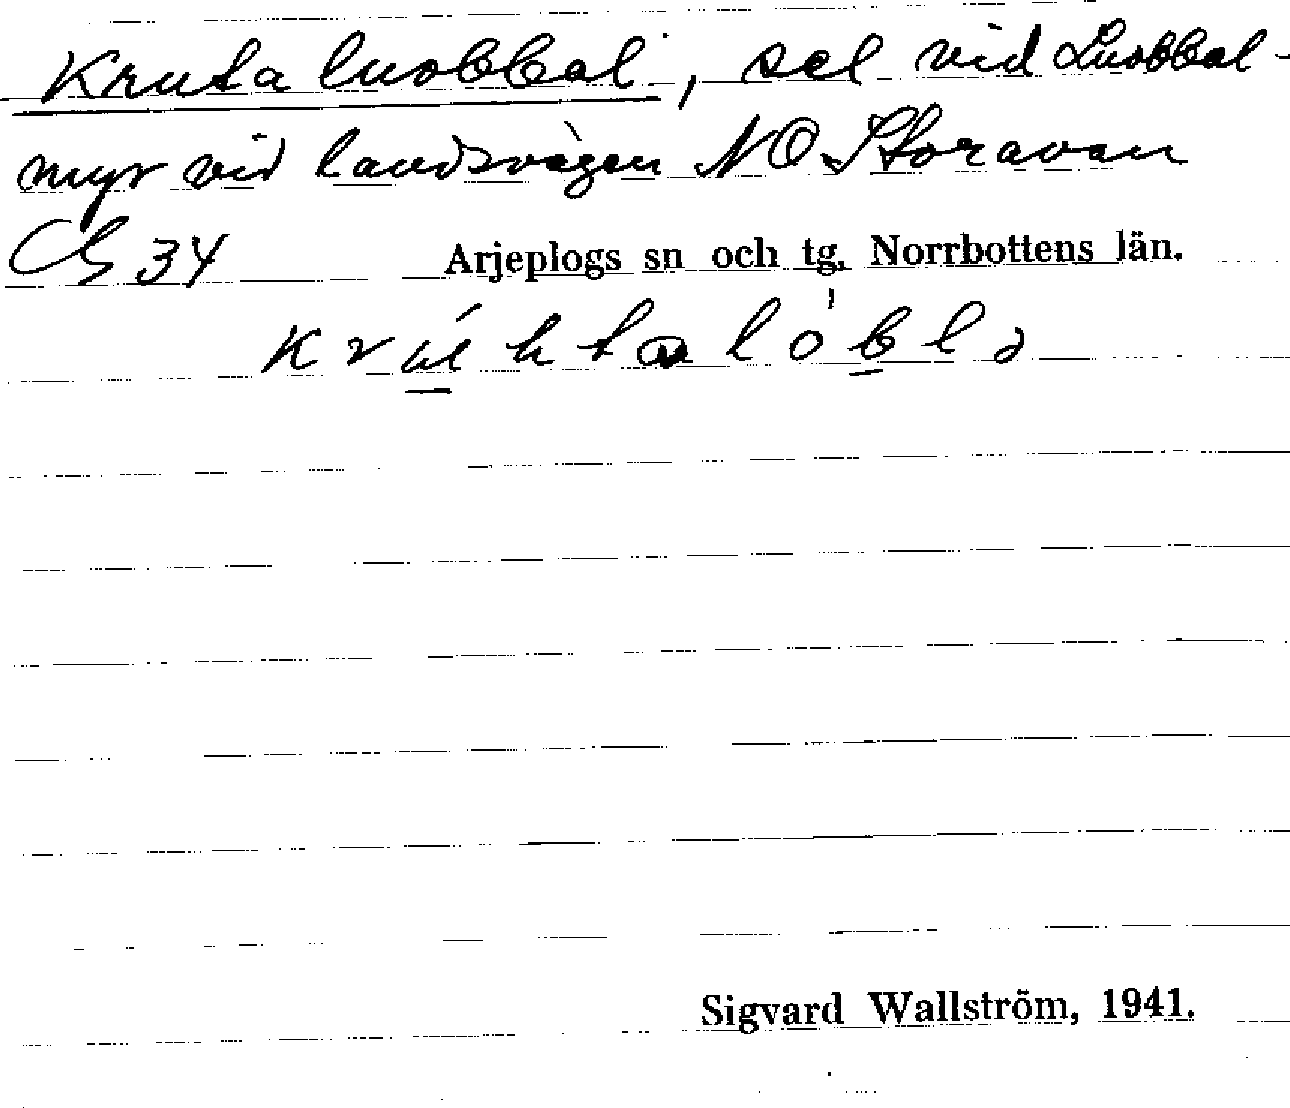 Kruta luobbal, sel vid Luobbal-
myr vid landsvägen NO Storavan
34 Arjeplogs sn och tg, Norrbottens län.
Sigvard Wallström, 1941.